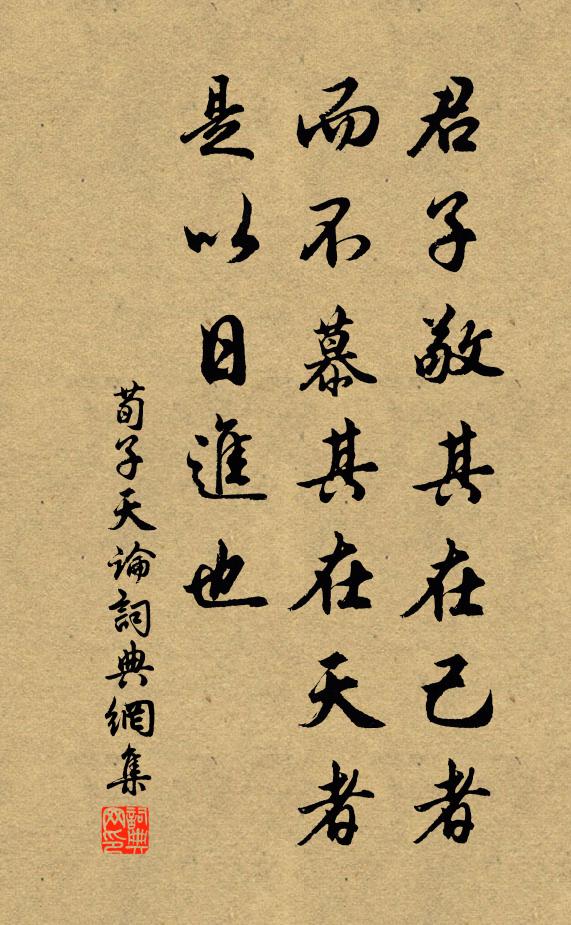 君子敬其在己者
而不慕其在天者
是以日進也
荀子天論詞典網集
詞典
网印